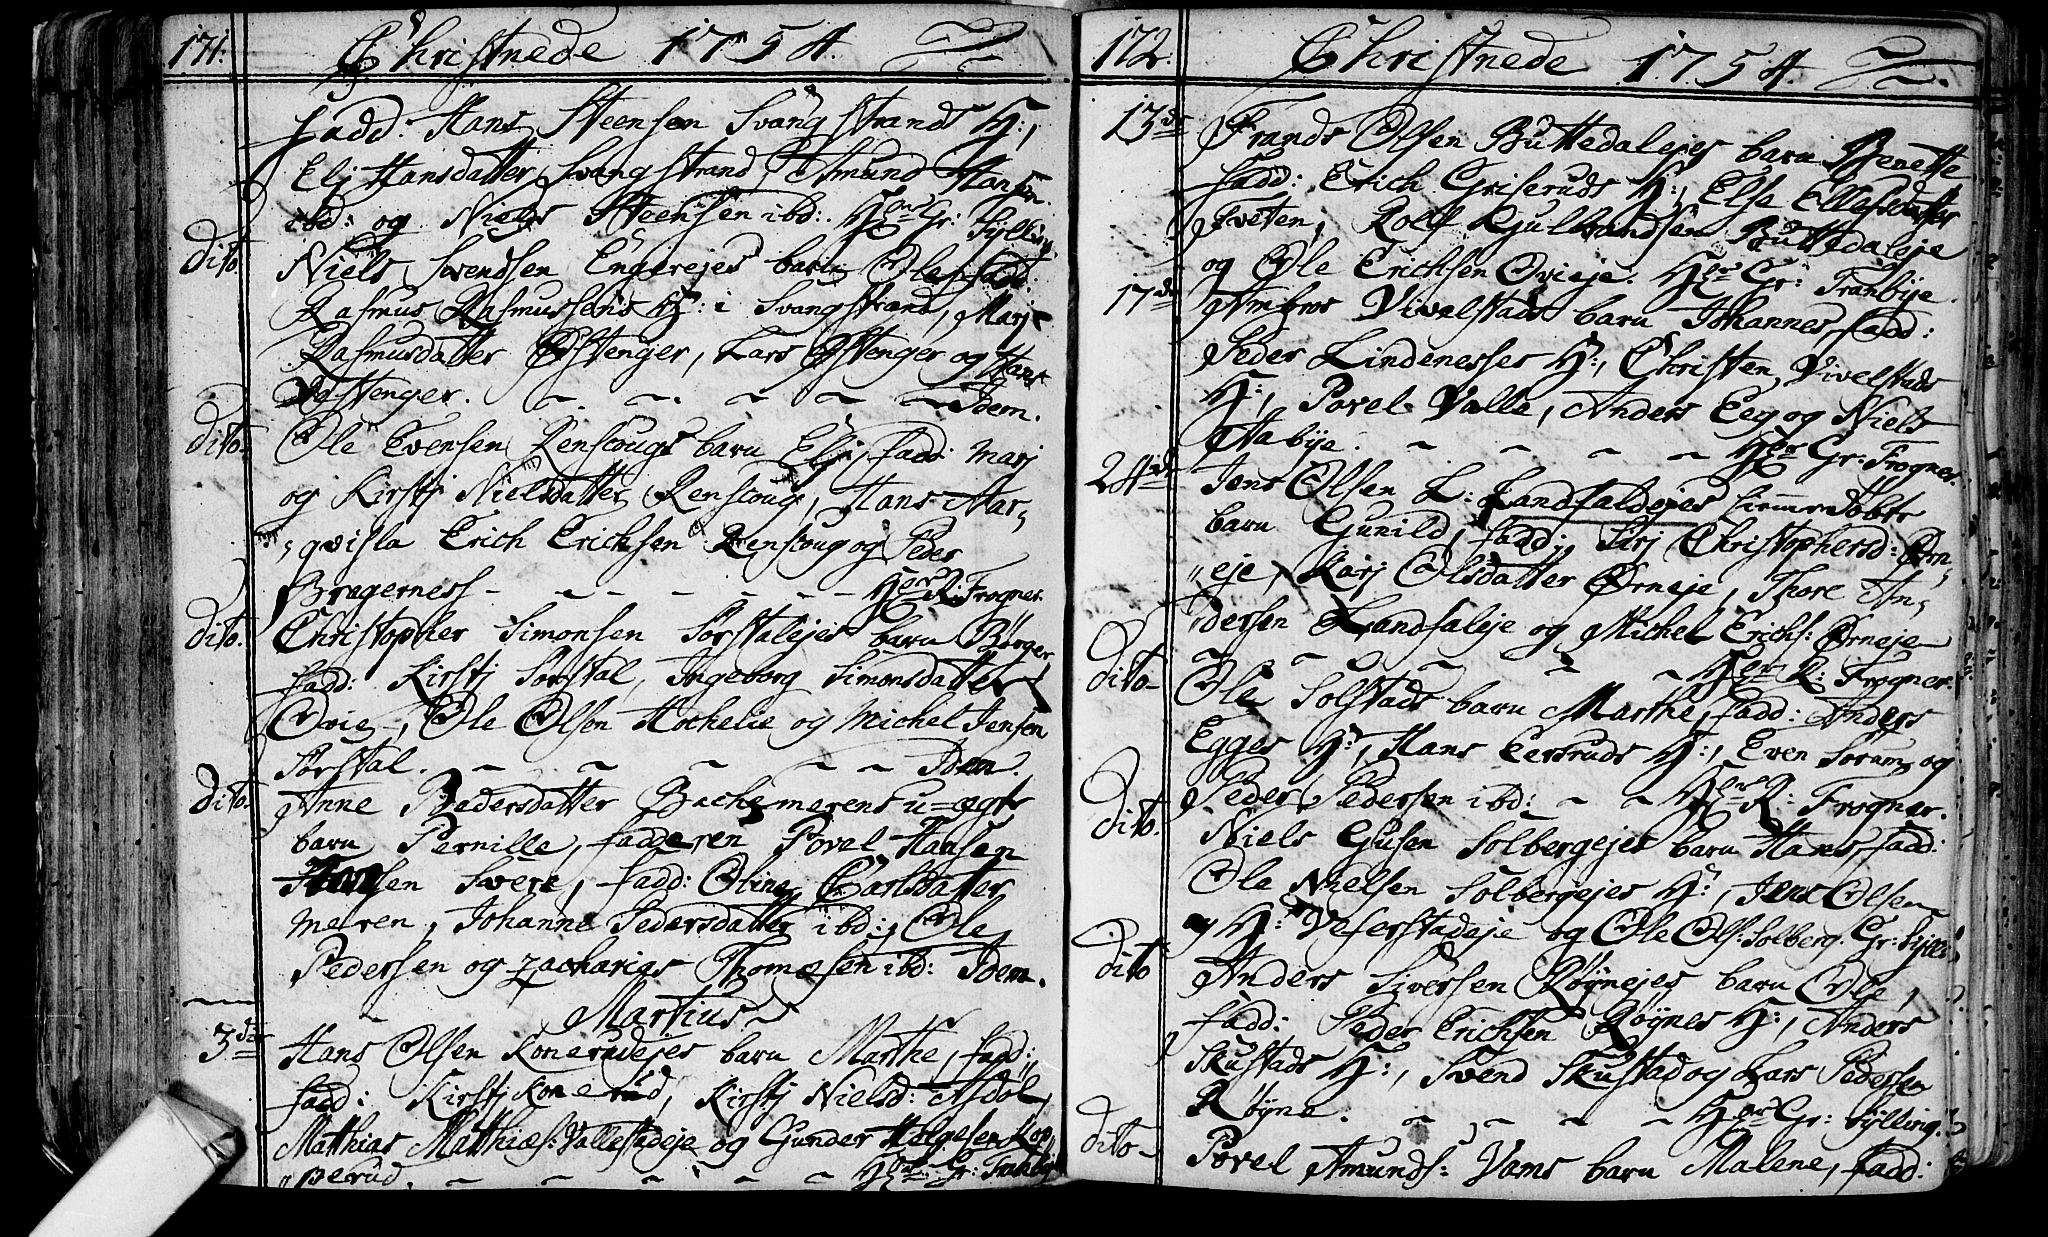 171. Christnede 1754.
fadd: Hans Steensen Svangstrands H:,
Elj Hansdatter Svangstrand, Amund Hansen
ibd: og Niels Steensen ibd: Gr: Sylling
dito Niels Svendsen Engerejes barn Ole fadd:
Rasmus Rasmussens H: i Svangstrand, Marj
Rasmusdatter Østenger, Lars Østenger og Hans
Vestenger. Idem.
dito. Ole Evensen Renscougs barn Elj, fadd: Marj
og Kirstj Nielsdatter Renscoug, Hans Aar,,
,,qvisla Erich Erichsen Renscoug og Peder
Bragerness - R: Frogner.
dito. Christopher Simonsen Sørstalejes barn Børger
fadd: Kirstj Sørstal, Ingeborg Simonsdatter
Ovie, Ole Olsen Hochelie og Michel Jensen
Sørstal. Idem.
dito. Anne Pedersdatter Bachemerens u=ægte
barn Pernille, fadderen Povel Hansen
Svere, fadd: Oline Carlsdatter
meren, Johanne Pedersdatter ibd:, Ole
Pedersen og Zacharias Thomæsen ibd: Idem.
Martius
3de Hans Olsen Konerudejes barn Marthe, fadd:
fadd: Kirstj Konerud, Kirstj Nielsd: Asdøl,
Mathias Matthiæs: Vallestadeje og Gunder Helgesen Kop,,
,,perud. Gr: Tranbye
172. Christnede 1754.
13de Frands Olsen Buttedalejes barn Benette
fadd: Erich Griseruds H:, Else Ellefsdatter
Tveten, Rolf Gulbrandsen Buttedaleje
og Ole Erichsen Ovieje. Gr: Tranbye.
17de Ambros Vivelstads barn Johannes, fadd:
Peder Lindenesses H:, Christen Vivelstads
H:, Povel Valle, Anders Eeg og Niels
Aabye. Gr: Frogner.
24de Jens Olsen L: Landfaldejes hiemmedøbte
barn Gunild, fadd: Sirj Christophersd: Ørn,,
,,eje, Karj Olsdatter Ørneje, Thore An,,
,,dersen Landfaleje og Michel Erichs: Ørneje
R: Frogner.
dito - Ole Solstads barn Marthe, fadd: Anders
Egges H:, Hans Eertruds H:, Even Soram og
Peder Pedersen ibd: R: Frogner.
dito. Niels Gusen Solbergejes barn Hans, fadd:
Ole Nielsen Solbergejes H:, Jens Olsen
og H: Veserstadeje og Ole Ols: Solberg. Gr: Sylli:
dito Anders Siversen Røynejes barn Ole,
fadd: Peder Erichsen Røynes H:, Anders
Skustads H:, Svend Skustad og Lars Pedersen
Røyne. Gr: Sylling.
dito - Povel Amunds: Vams barn Malene, fadd: